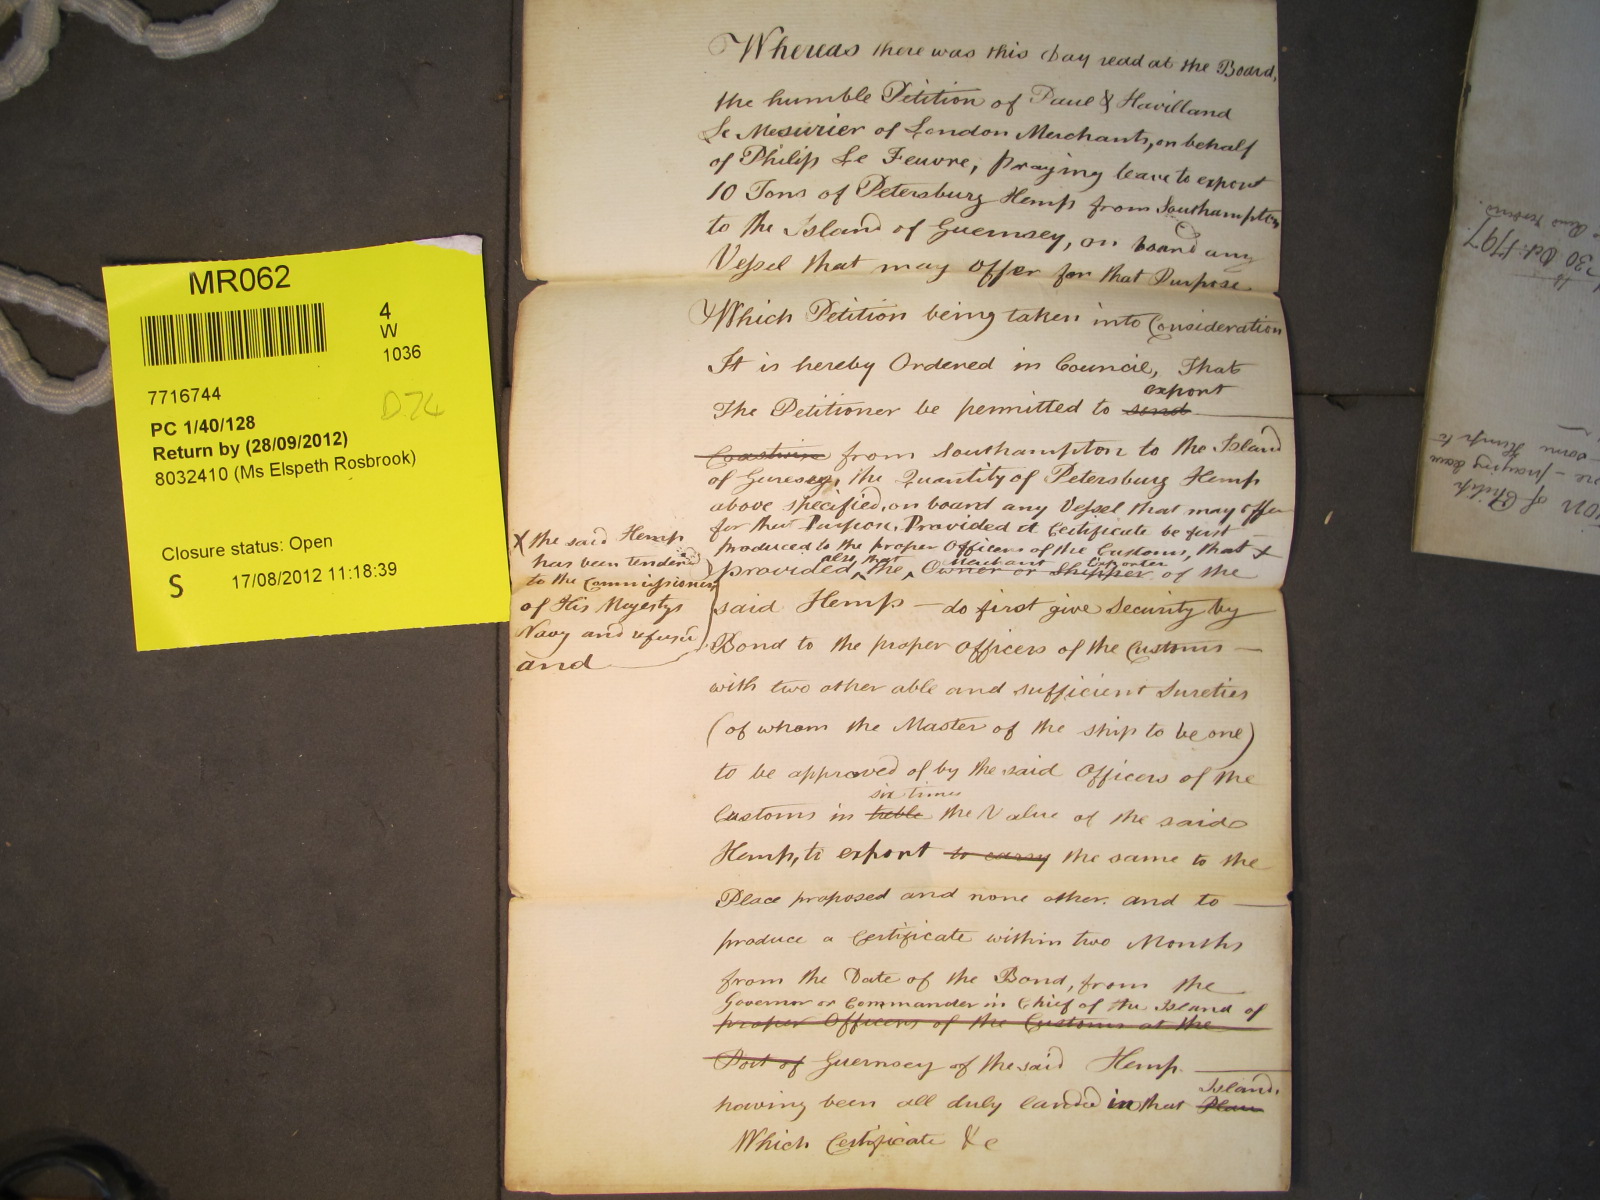 MR062
4
W
1036
7716744
D74
PC 1/40/128
Return by (28/09/2012)
8032410 (Ms Elspeth Rosbrook)
Closure status: Open
S 17/08/2012 11:18:39
Whereas there was this day read at the Board,
the humble Petition of Paul & Havilland
Le Mesurier of London Merchants, on behalf
of Philip Le Feuvre, praying leave to export
10 Tons of Petersburg Hemp from Southampton
to the Island of Guernsey, on board any
Vessel that may offer for that Purpose
Which Petition being taken into Consideration
It is hereby Ordered in Council, That
export
The Petitioner be permitted to send
Coastwise from Southampton to the Island
of Guernsey, the Quantity of Petersburg Hemp
above specified, on board any Vessel that may offer
for that Purpose, Provided a Certificate be first
produced to the proper Officers of the Customs, that X
also that Merchant Exporter
provided the Owner or Shipper of the
X the said Hemp
has been tendered
to the Commissioners
of His Majestys
Navy and refused
and
said Hemp – do first give Security by
Bond to the proper Officers of the Customs –
with two other able and sufficient Sureties
(of whom the Master of the ship to be one)
to be approved of by the said Officers of the
six times
Customs in treble the Value of the said
Hemp, to export to carry the same to the
Place proposed and none other. and to
produce a Certificate within two Months
from the Date of the Bond, from the
Governor or Commander in Chief of the Island of
proper Officers of the Customs at the
Port of Guernsey of the said Hemp
Island.
having been all duly landed in that Place
Which Certificate &c
30 Oct. 1797
some Hemp to
praying leave
of Philip